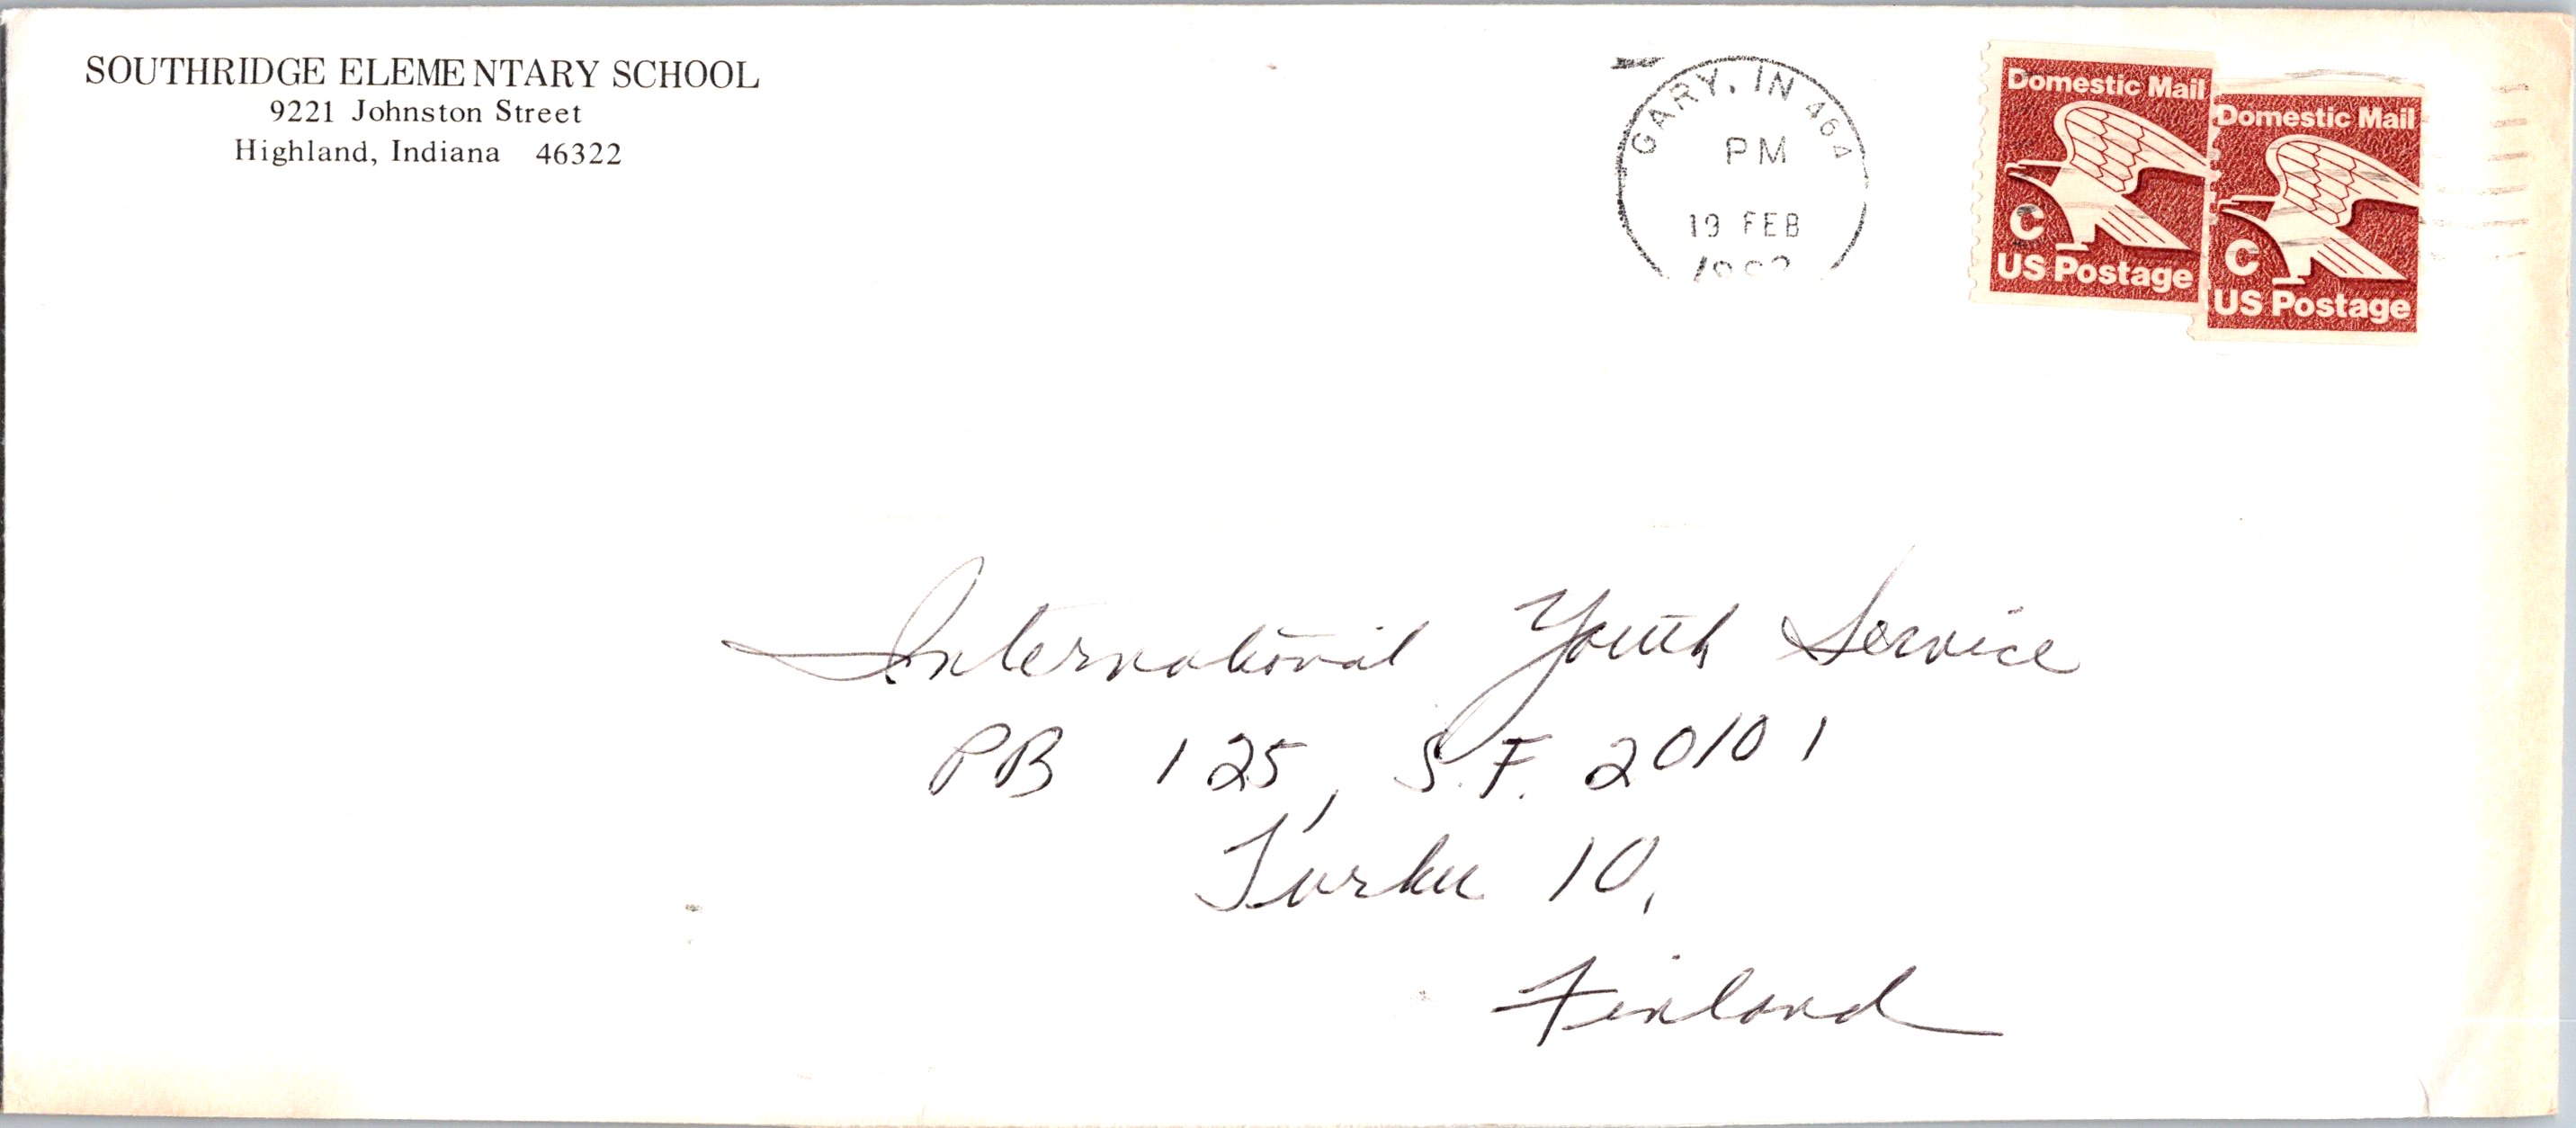 SOUTHRIDGE ELEMENTARY SCHOOL
9221 Johnston Street
Highland, Indiana 46322
GARY, IN 464
PM
19 FEB
Domestic Mail
C
US Postage
Domestic Mail
C
US Postage
International Youth Service
PB 125, S.F. 20101
Turku 10,
Finland